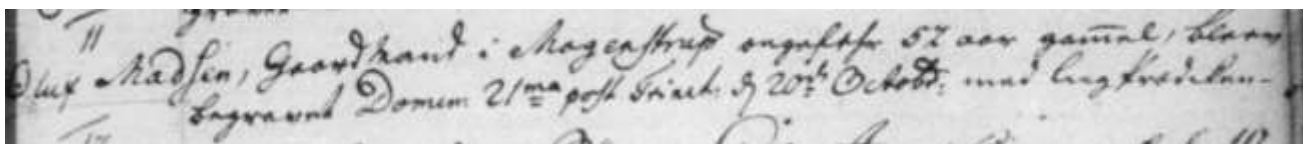 11
Oluf Madsen, Gaardmand i Mogenstrup ongefehr 52 aar gammel, bleev
begravet Domin: 21ma post Trinit: d 20de Octobr: med liigprædiken